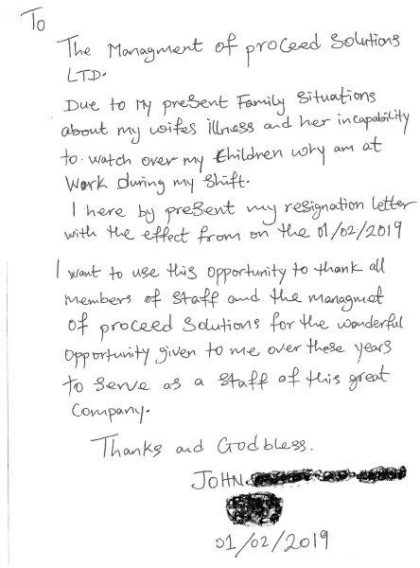 To
The Managment of proceed Solutions
LTD.
Due to my present Family Situations
about my wifes illness and her incapability
to watch over my children why am at
Work during my Shift.
I here by present my resignation letter
with the effect from on the 01/02/2019
I want to use this opportunity to thank all
members of Staff and the managmet
of proceed Solutions for the wonderful
Opportunity given to me over these years
to Serve as a Staff of this great
Company.
Thanks and God bless.
JOHN
01/02/2019